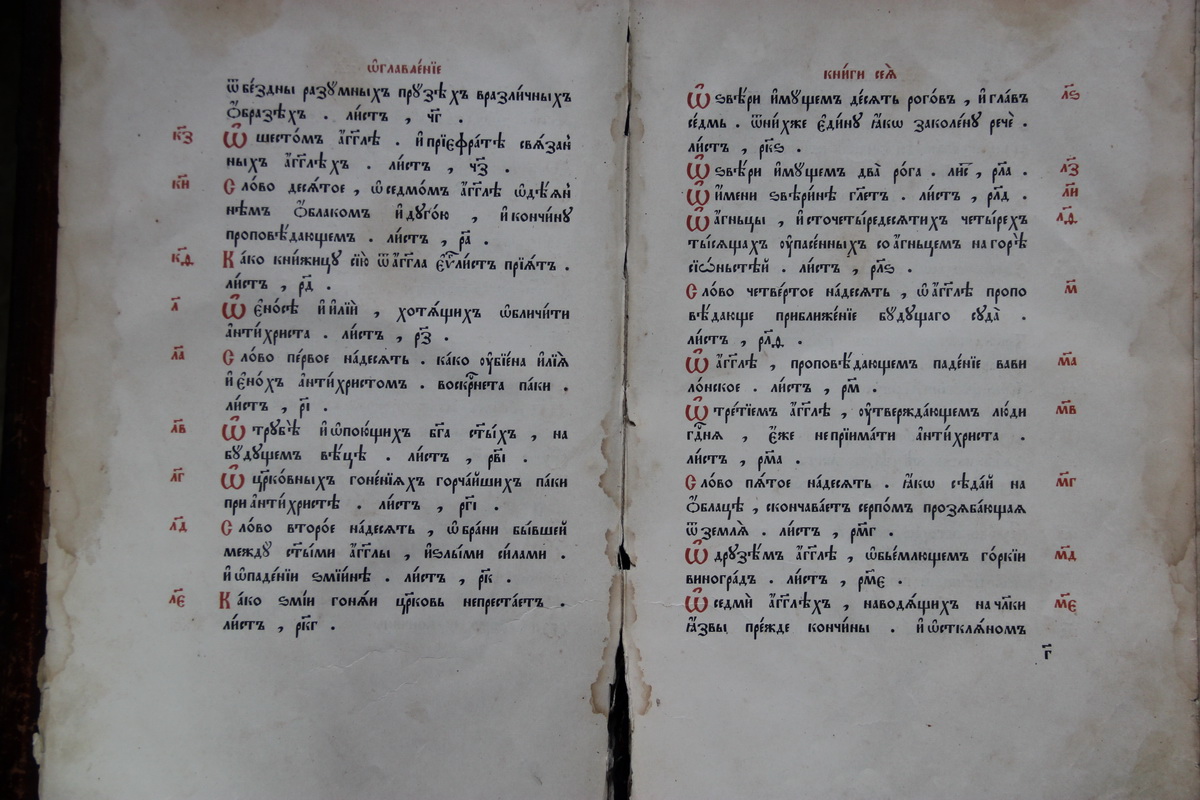 ѡ҆главле́нїе
ѿбе́здны разꙋмныхъ прꙋзѣ́хъ вразли́чныхъ
ѻ҆́бразѣхъ . ли́стъ , ч҃г .
к҃з Ѡ҆ шесто́мъ а҆́гг҃лѣ . и҆прїєфра́тѣ свѧ́зан
ныхъ а҆́гг҃лѣхъ . ли́стъ , ч҃з .
к҃и Сло́во десѧ́тое , ѡ҆седмо́мъ а҆́гг҃лѣ ѡ҆дѣ́ѧн
нѣмъ ѻ҆́блакомъ и҆дꙋго́ю , и҆кончи́нꙋ
проповѣ́дающемъ . ли́стъ , р҃а .
к҃ѳ Ка́ко кни́жицꙋ сїю̀ ѿа҆́гг҃ла є҆ѵⷢ҇ли́стъ прїѧ́тъ .
ли́стъ , р҃д .
л҃ Ѡ҆ є҆но́сѣ и҆илїѝ , хотѧ́щихъ ѡ҆бличи́ти
а҆нти́христа . ли́стъ , р҃з .
л҃а Сло́во пе́рвое на́десѧть . ка́ко ᲂу҆бїе́на и҆лїѧ̀
и҆є҆но́хъ а҆нти́христомъ . воскрⷭ҇нета па́ки .
ли́стъ , р҃і .
л҃в Ѡ҆ трꙋбѣ̀ и҆ѡ҆пою́щихъ бг҃а ст҃ы́хъ , на
бꙋ́дꙋщемъ вѣ́цѣ . ли́стъ , рв҃і .
л҃г Ѡ҆ цр҃ко́вныхъ гоне́нїѧхъ горча́йшихъ па́ки
при а҆нти́христѣ . ли́стъ , рг҃і .
л҃д Сло́во второ́е на́десѧть , ѡ҆бра́ни бы́вшей
междꙋ̀ ст҃ы́ми а҆́гг҃лы , и҆ѕлы́ми си́лами .
и҆ѡ҆паде́нїи ѕмїи́нѣ . ли́стъ , р҃к .
л҃є Ка́ко ѕмі́и гонѧ́и цр҃ковь непреста́етъ .
ли́стъ , рк҃г .
кни́ги сеѧ̀
Ѡ҆ ѕвѣ́ри и҆мꙋ́щемъ де́сѧть рого́въ , и҆гла́въ л҃ѕ
се́дмь . ѿни́хже є҆ди́нꙋ ꙗ҆́кѡ заколе́нꙋ речѐ .
ли́стъ , рк҃ѕ .
Ѡ҆ ѕвѣ́ри и҆мꙋ́щемъ два̀ ро́га . лиⷭ҇ , рл҃а . л҃з
Ѡ҆ и҆́мени ѕвѣри́нѣ гл҃етъ . ли́стъ , рл҃д . л҃и
Ѡ҆ а҆́гньцы , и҆сточеты́редесѧтихъ четы́рехъ л҃ѳ
ты́сѧщахъ ᲂу҆пасе́нныхъ со а҆́гньцемъ на горѣ̀
сїѡ́ньстѣй . ли́стъ , рл҃ѕ .
Сло́во четве́ртое на́десѧть , ѡ҆а҆́гг҃лѣ пропо м҃
вѣ́дающе приближе́нїе бꙋ́дꙋщаго сꙋда̀ .
ли́стъ , рл҃ѳ .
Ѡ҆ а҆́гг҃лѣ , проповѣ́дающемъ паде́нїе вави м҃а
ло́нское . ли́стъ , р҃м .
Ѡ҆ тре́тїемъ а҆́гг҃лѣ , ᲂу҆твержда́ющемъ лю́ди м҃в
гдⷭ҇нѧ , є҆́же непрїима́ти а҆нти́христа .
ли́стъ , рм҃а .
Сло́во пѧ́тое на́десѧть . ꙗ҆́кѡ сѣда́й на м҃г
ѻ҆́блацѣ , скончава́етъ серпо́мъ прозѧба́ющаѧ
ѿземлѧ̀ . ли́стъ , рм҃г .
Ѡ҆ дрꙋзѣ́мъ а҆́гг҃лѣ , ѡ҆бье́млющемъ го́ркїи м҃д
виногра́дъ . ли́стъ , рм҃є .
Ѡ҆ седмѝ а҆́гг҃лѣхъ , наводѧ́щихъ на чл҃ки м҃є
ꙗ҆́звы пре́жде кончи́ны . и҆ѡ҆стклѧ́номъ
г҃